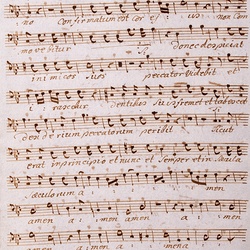 no Confirmatum est cor ejus non com
movebitur donec despiciat
inimicos suos peccator videbit et
irascetur dentibus suis fremet et tabescet
desiderium peccatorum peribit Sicut
erat in principio et nunc et Semper et in Saecula
saeculorum a : : men
amen a : men amen a : men
amen a : men amena